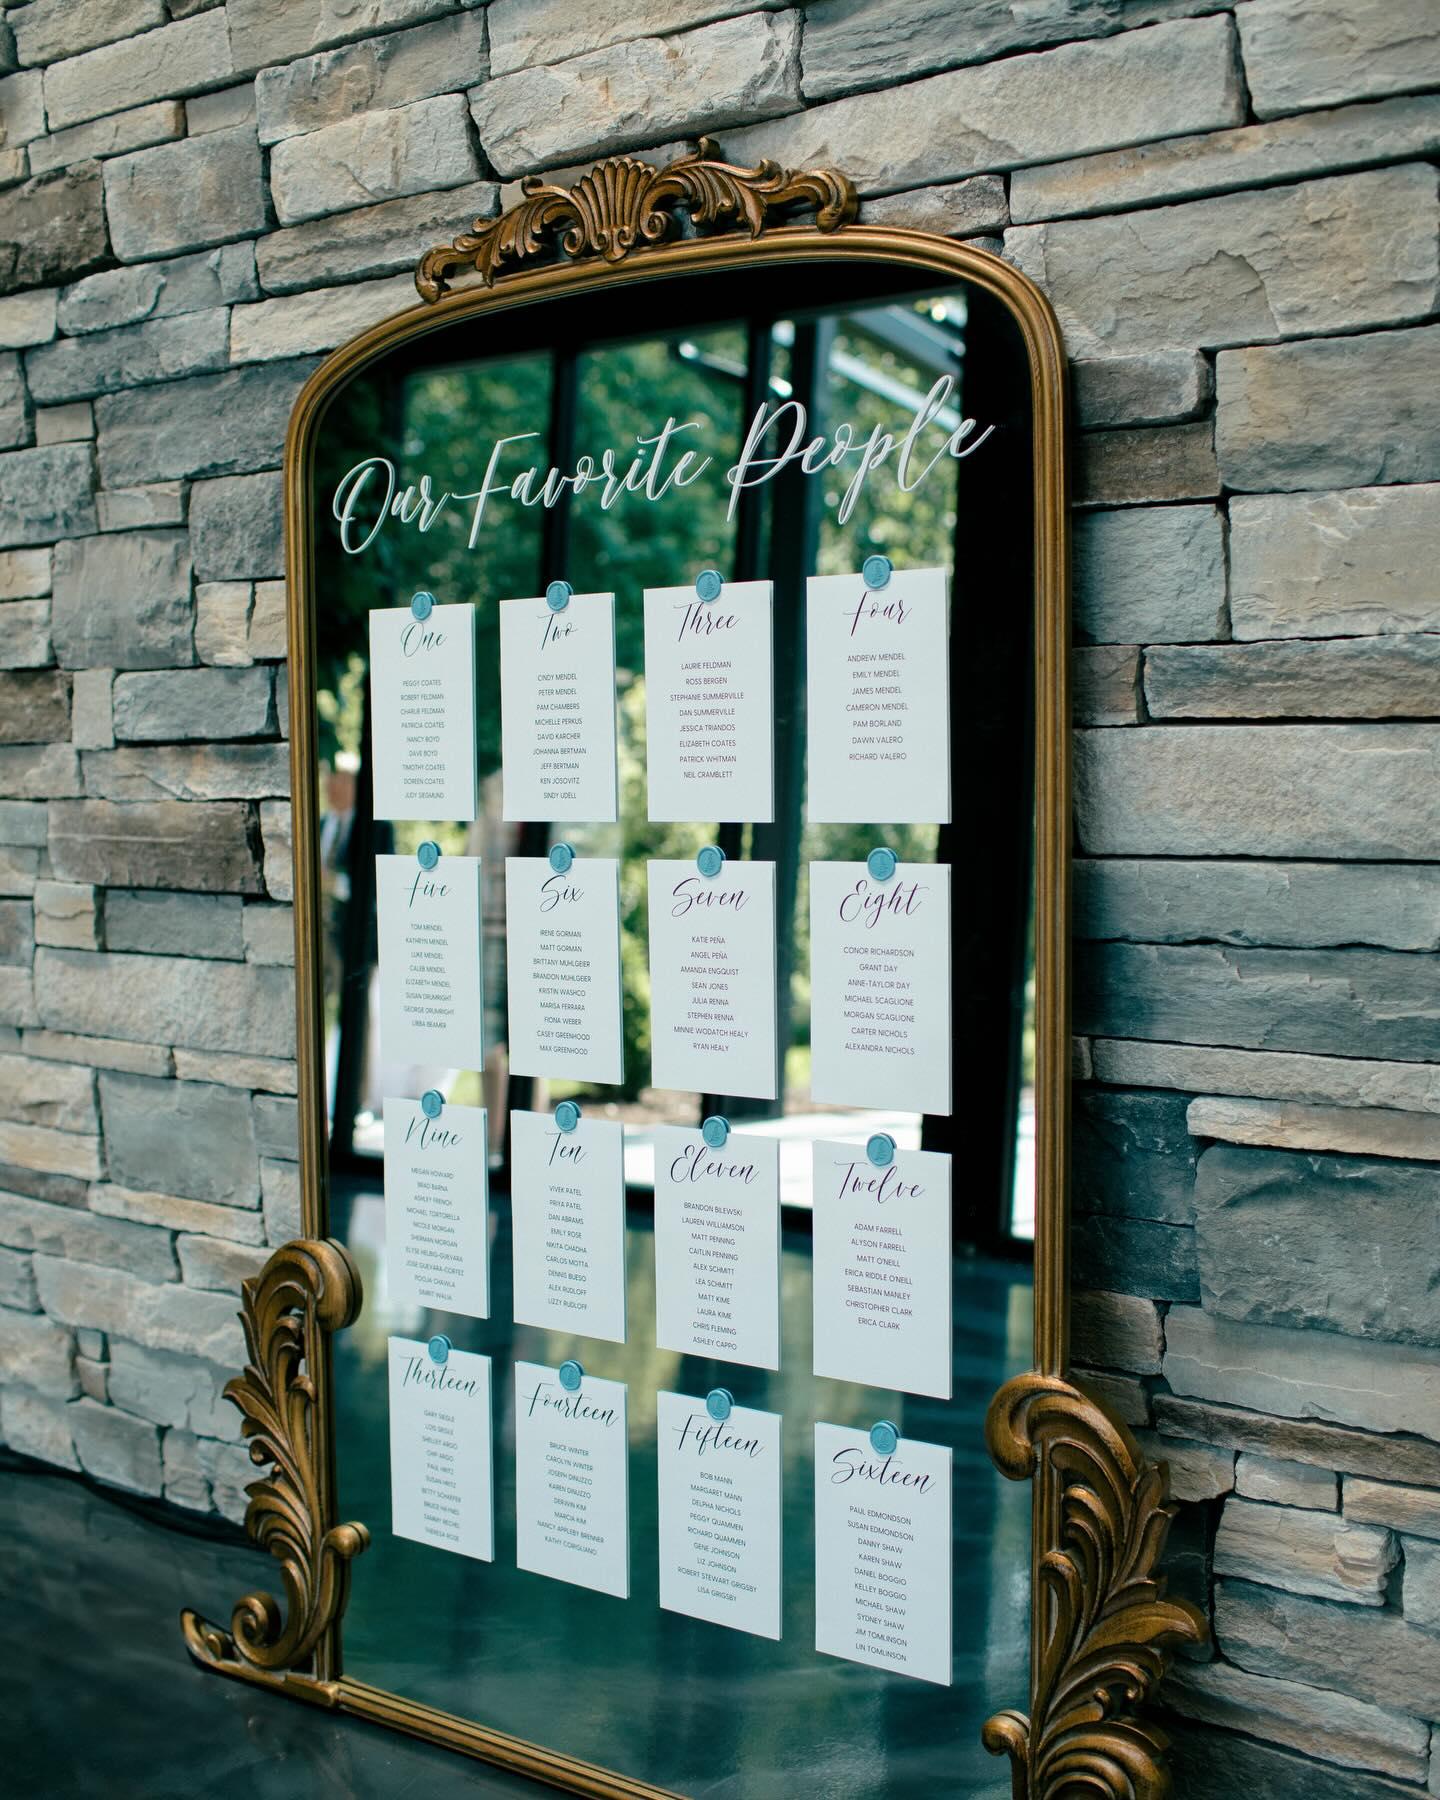 Our Favorite People
One
PEGGY COATES
ROBERT FELDMAN
CHARLIE FELDMAN
PATRICIA COATES
NANCY BOYD
DAVE BOYD
TIMOTHY COATES
DOREEN COATES
JUDY SIEGMUND
Two
CINDY MENDEL
PETER MENDEL
PAM CHAMBERS
MICHELLE PERKUS
DAVID KARCHER
JOHANNA BERTMAN
JEFF BERTMAN
KEN JOSOVITZ
SINDY UDELL
Three
LAURIE FELDMAN
ROSS BERGEN
STEPHANIE SUMMERVILLE
DAN SUMMERVILLE
JESSICA TRIANDOS
ELIZABETH COATES
PATRICK WHITMAN
NEIL CRAMBLETT
Four
ANDREW MENDEL
EMILY MENDEL
JAMES MENDEL
CAMERON MENDEL
PAM BORLAND
DAWN VALERO
RICHARD VALERO
Five
TOM MENDEL
KATHRYN MENDEL
LUKE MENDEL
CALEB MENDEL
ELIZABETH MENDEL
SUSAN DRUMRIGHT
GEORGE DRUMRIGHT
LIBBA BEAMER
Six
IRENE GORMAN
MATT GORMAN
BRITTANY MUHLGEIER
BRANDON MUHLGEIER
KRISTIN WASHCO
MARISA FERRARA
FIONA WEBER
CASEY GREENHOOD
MAX GREENHOOD
Seven
KATIE PEÑA
ANGEL PEÑA
AMANDA ENGQUIST
SEAN JONES
JULIA RENNA
STEPHEN RENNA
MINNIE WODATCH HEALY
RYAN HEALY
Eight
CONOR RICHARDSON
GRANT DAY
ANNE-TAYLOR DAY
MICHAEL SCAGLIONE
MORGAN SCAGLIONE
CARTER NICHOLS
ALEXANDRA NICHOLS
Nine
MEGAN HOWARD
BRAD BARNA
ASHLEY FRENCH
MICHAEL TORTORELLA
NICOLE MORGAN
SHERMAN MORGAN
ELYSE HELBIG-GUEVARA
JOSE GUEVARA-CORTEZ
POOJA CHAWLA
SIMRIT WALIA
Ten
VIVEK PATEL
PRIYA PATEL
DAN ABRAMS
EMILY ROSE
NIKITA CHADHA
CARLOS MOTTA
DENNIS BUESO
ALEX RUDLOFF
LIZZY RUDLOFF
Eleven
BRANDON BILEWSKI
LAUREN WILLIAMSON
MATT PENNING
CAITLIN PENNING
ALEX SCHMITT
LEA SCHMITT
MATT KIME
LAURA KIME
CHRIS FLEMING
ASHLEY CAPPO
Twelve
ADAM FARRELL
ALYSON FARRELL
MATT O'NEILL
ERICA RIDDLE O'NEILL
SEBASTIAN MANLEY
CHRISTOPHER CLARK
ERICA CLARK
Thirteen
GARY SIEGLE
LOIS SIEGLE
SHELLEY ARGO
CHIP ARGO
PAUL HRITZ
SUSAN HRITZ
BETTY SCHAEFER
BRUCE HAYNES
TAMMY RECHEL
THERESA ROSE
Fourteen
BRUCE WINTER
CAROLYN WINTER
JOSEPH DINUZZO
KAREN DINUZZO
DERWIN KIM
MARCIA KIM
NANCY APPLEBY BRENNER
KATHY CORIGLIANO
Fifteen
BOB MANN
MARGARET MANN
DELPHA NICHOLS
PEGGY QUAMMEN
RICHARD QUAMMEN
GENE JOHNSON
LIZ JOHNSON
ROBERT STEWART GRIGSBY
LISA GRIGSBY
Sixteen
PAUL EDMONDSON
SUSAN EDMONDSON
DANNY SHAW
KAREN SHAW
DANIEL BOGGIO
KELLEY BOGGIO
MICHAEL SHAW
SYDNEY SHAW
JIM TOMLINSON
LIN TOMLINSON